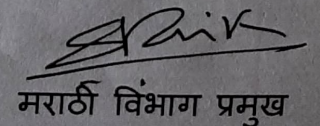 मराठी विंभाग प्रमुख